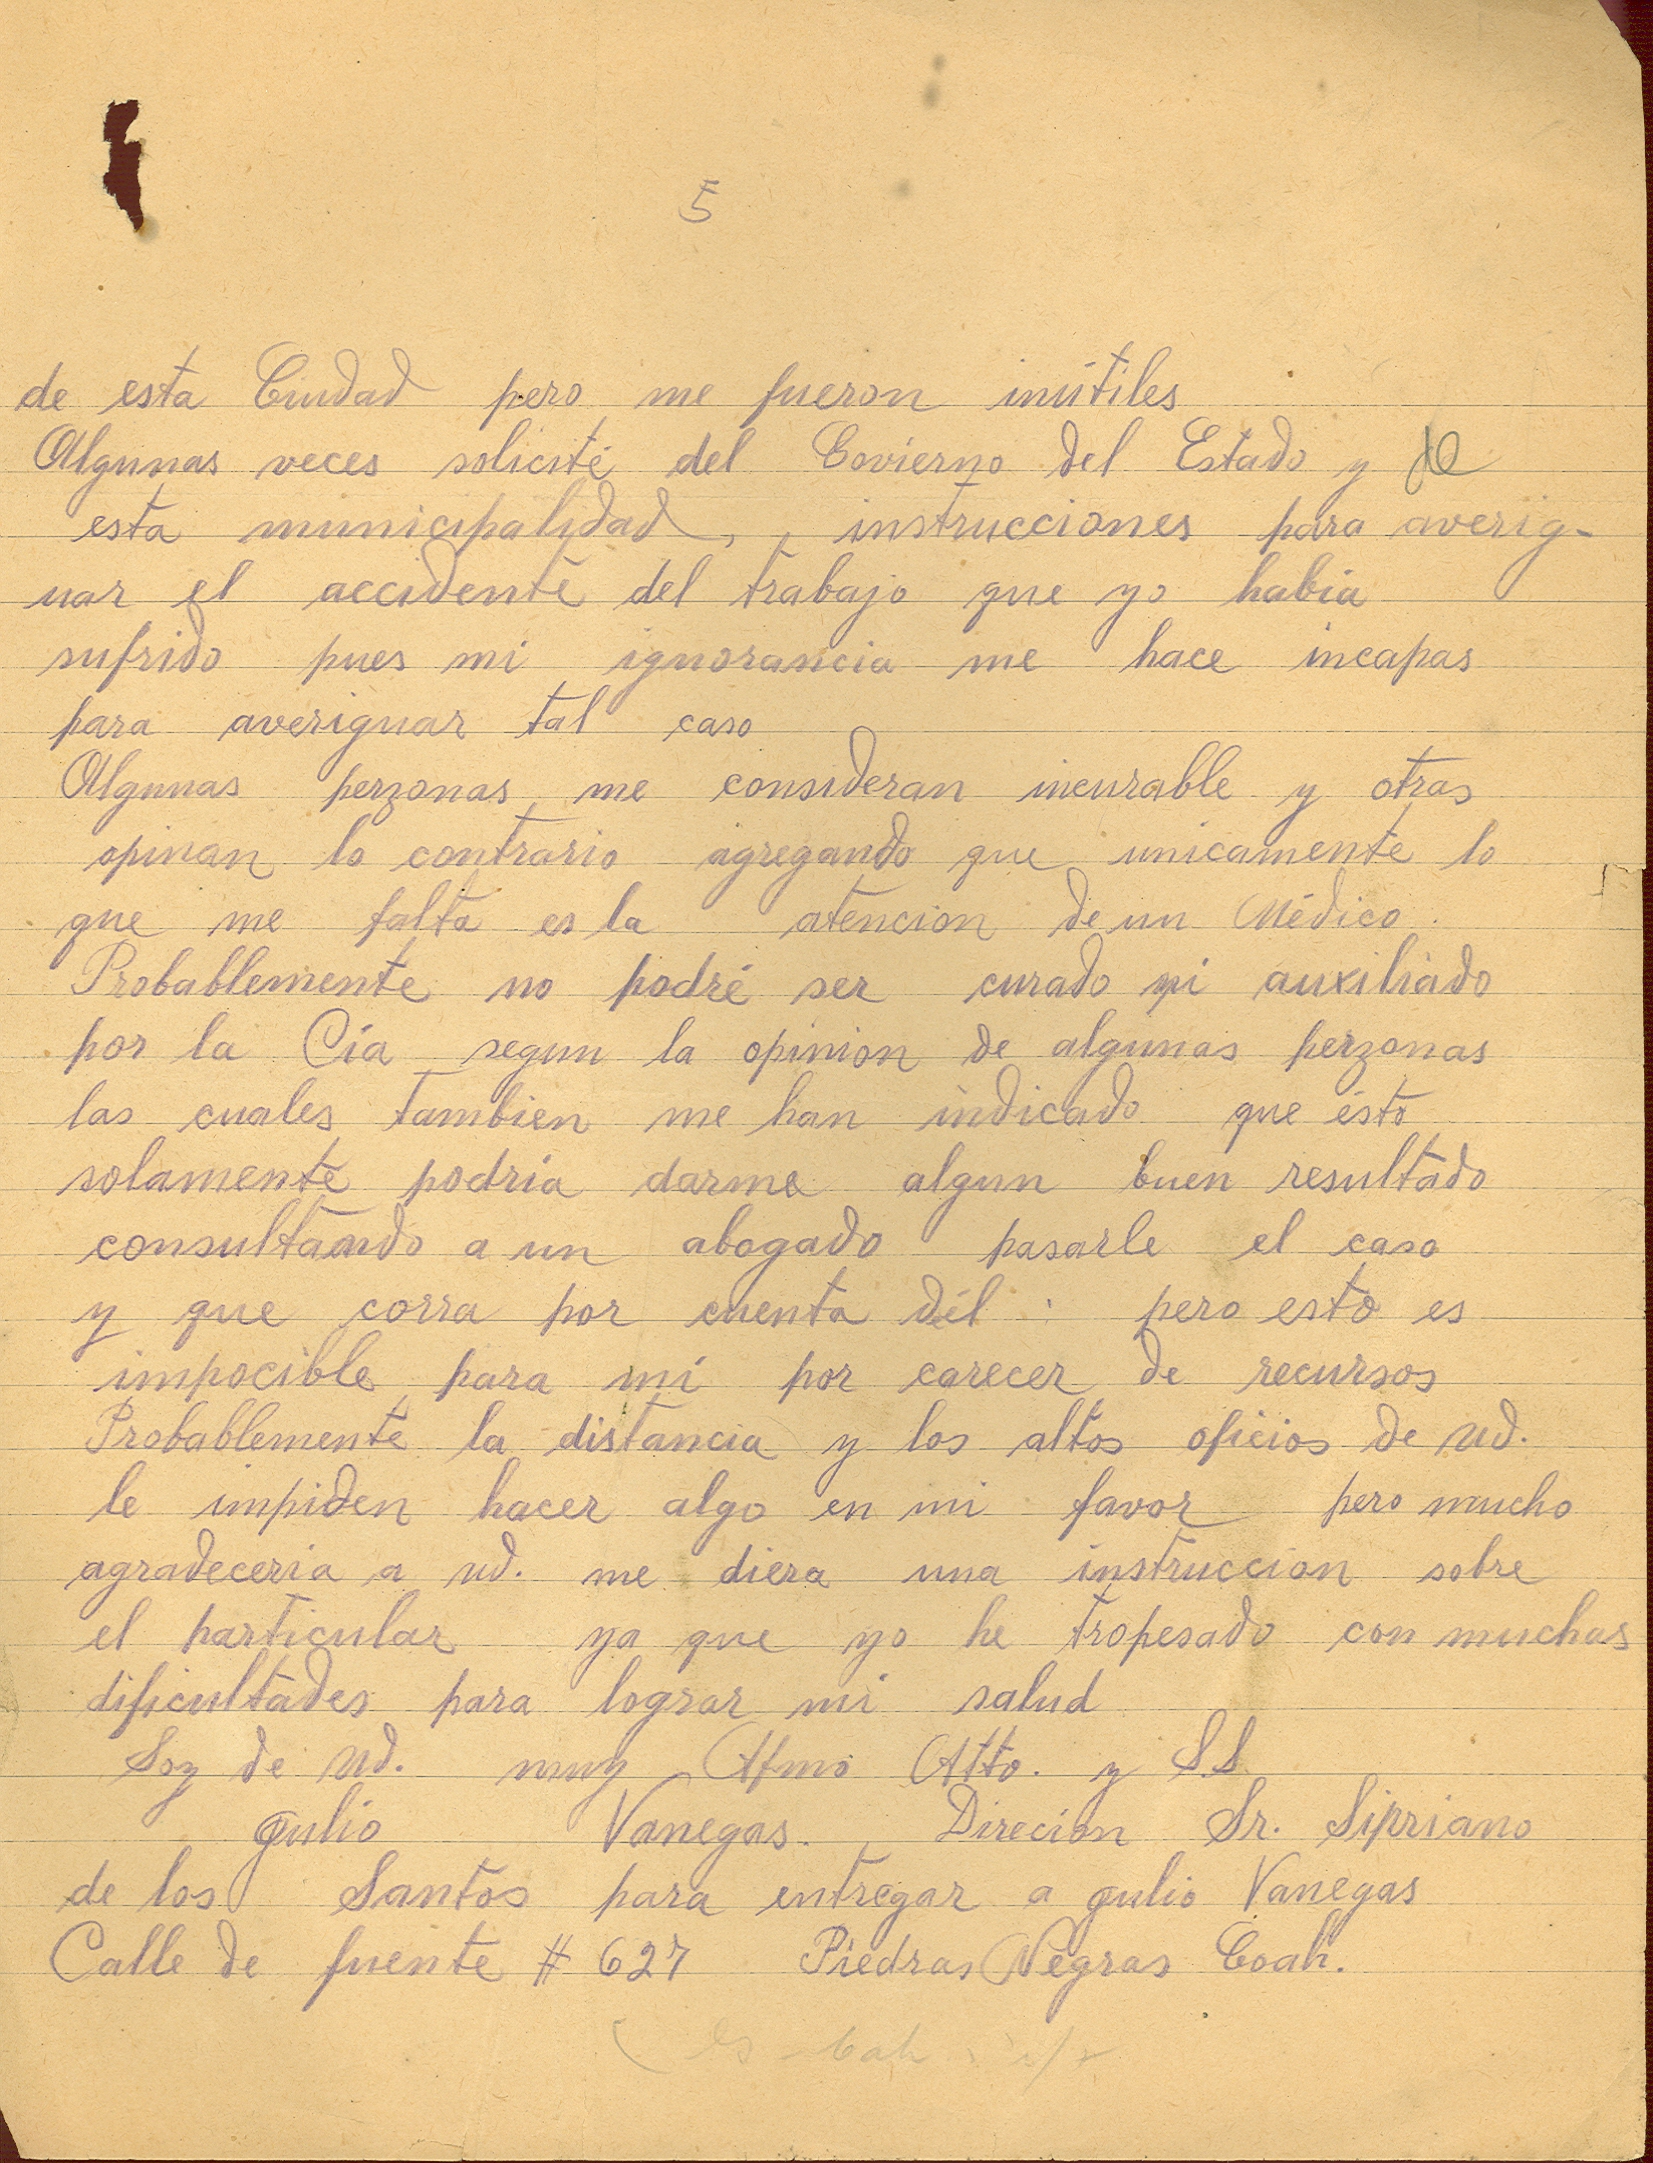 5
de esta Ciudad pero me fueron inútiles
Algunas veces solicité del Govierno del Estado y de
esta municipalidad, , instrucciones para averig-
uar el accidente del trabajo que yo habia
sufrido pues mi ignorancia me hace incapas
para averiguar tal caso
Algunas perzonas me consideran incurable y otras
opinan lo contrario agregando que unicamente lo
que me falta es la atencion de un Médico.
Probablemente no podré ser curado ni auxiliado
por la Cía segun la opinion de algunas perzonas
las cuales tambien me han indicado que ésto
solamente podria darme algun buen resultado
consultando a un abogado pasarle el caso
y que corra por cuenta dél : pero esto es
impocible para mí por carecer de recursos
Probablemente la distancia y los altos oficios de Ud.
le impiden hacer algo en mi favor pero mucho
agradeceria a ud. me diera una instruccion sobre
el particular ya que yo he tropesado con muchas
dificultades para lograr mi salud
Soy de Ud. muy Afmo Atto. y S.S.
Julio Vanegas. Direcion Sr. Sipriano
de los Santos para entregar a Julio Vanegas
Calle de fuente # 627 Piedras Negras Coah.